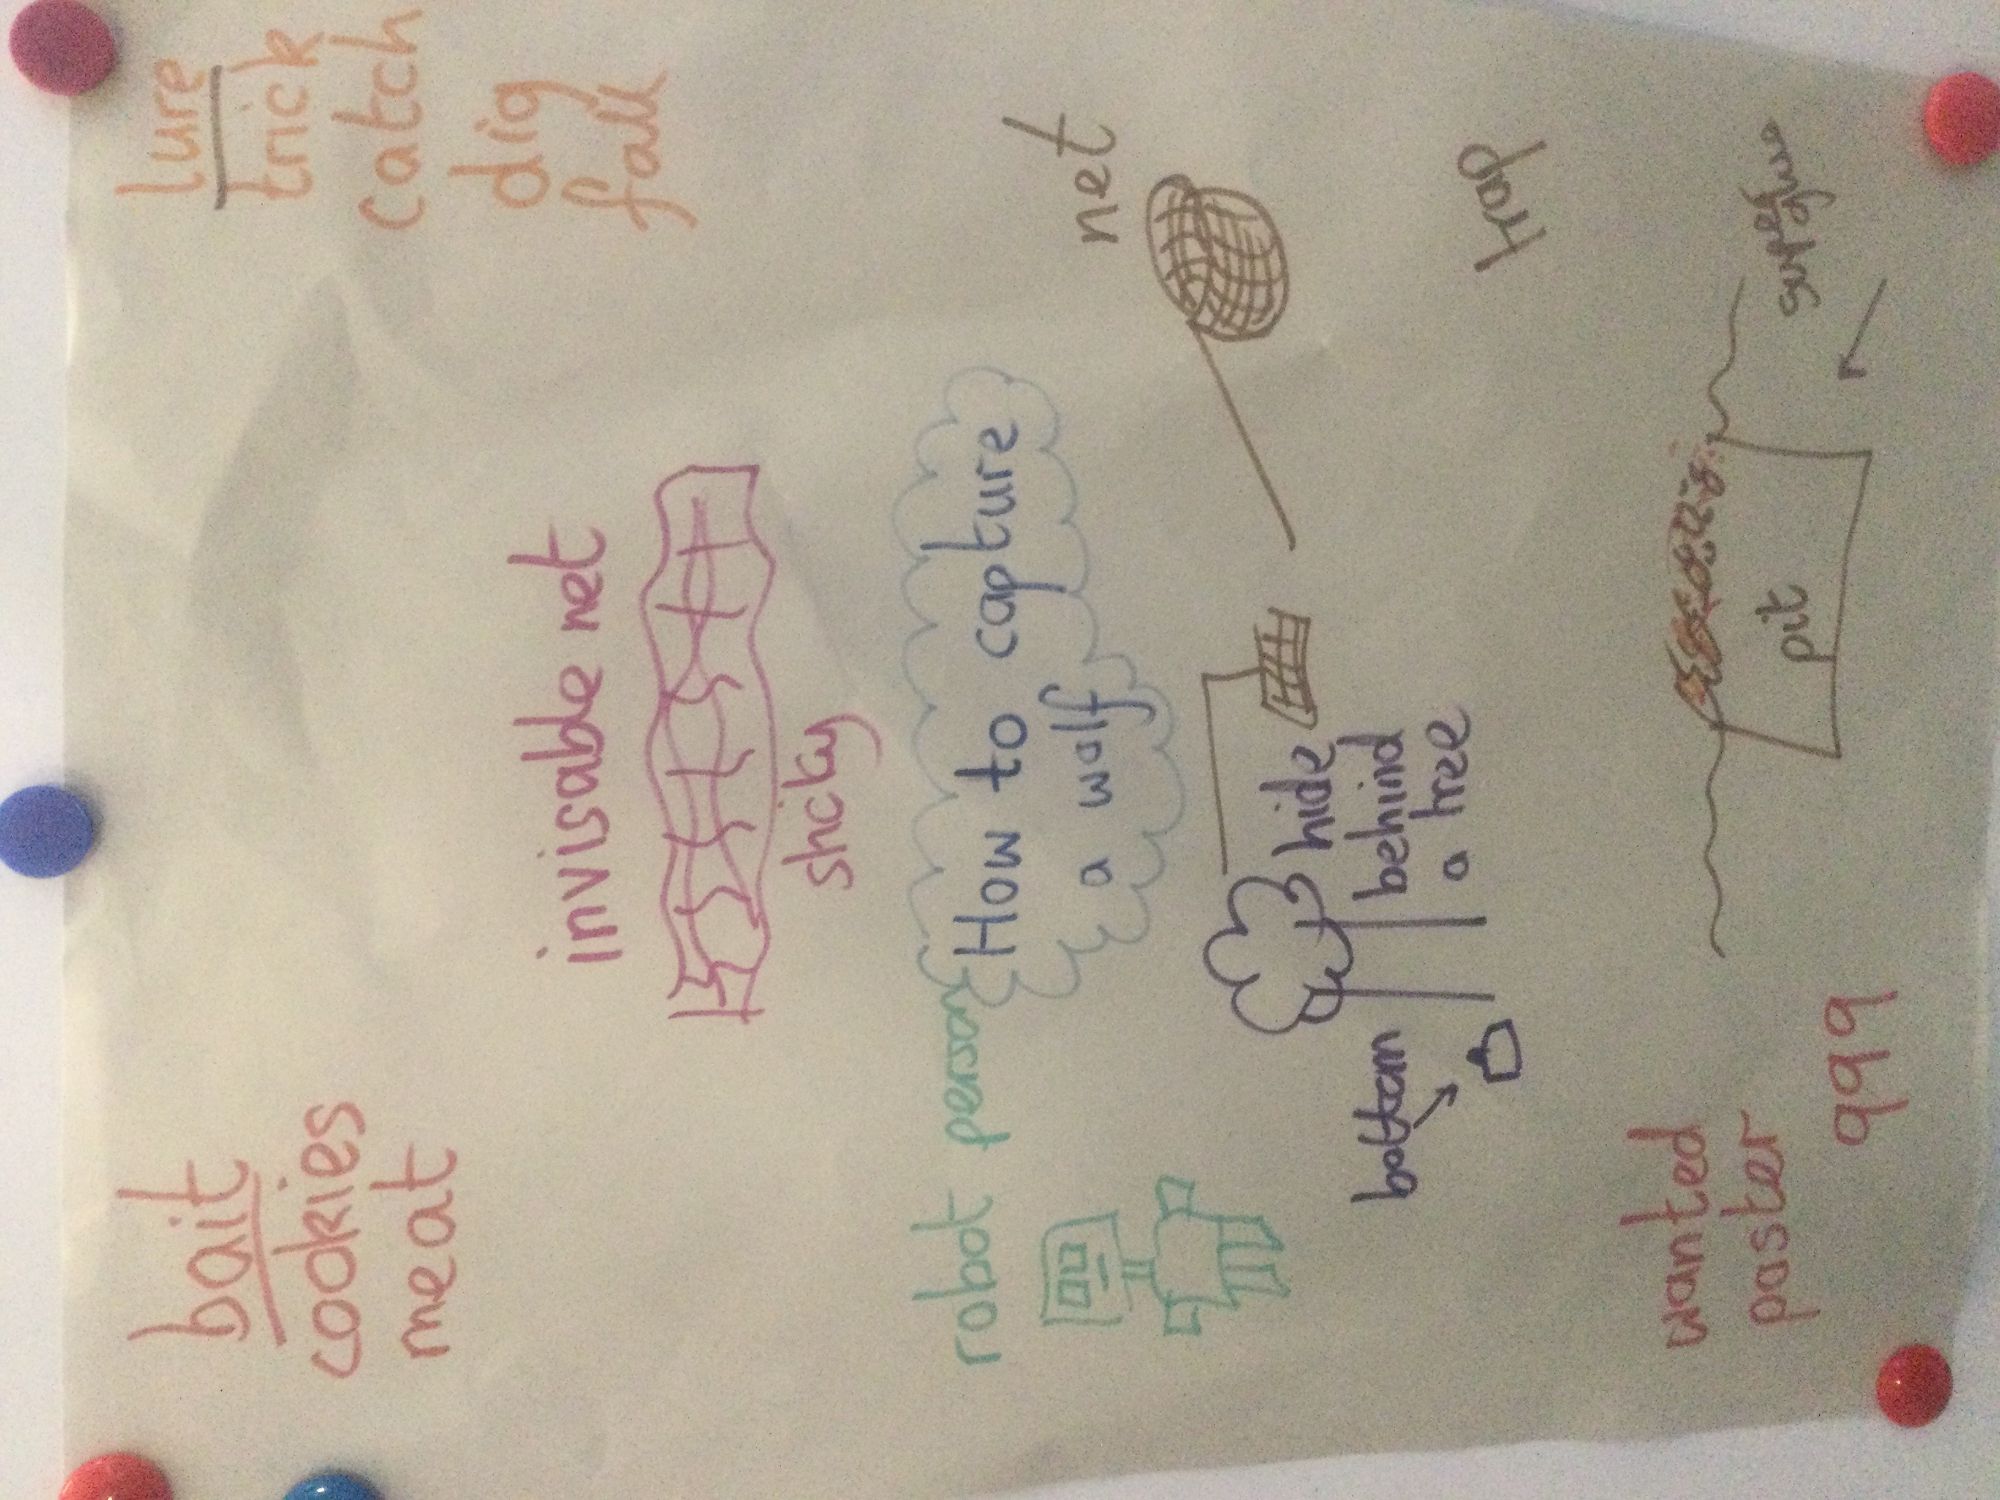 bait
cookies
meat
invisable net
sticky
lure
trick
catch
dig
fall
robot person
How to capture
a wolf
net
hide
behind
a tree
trap
wanted
poster
999
pit